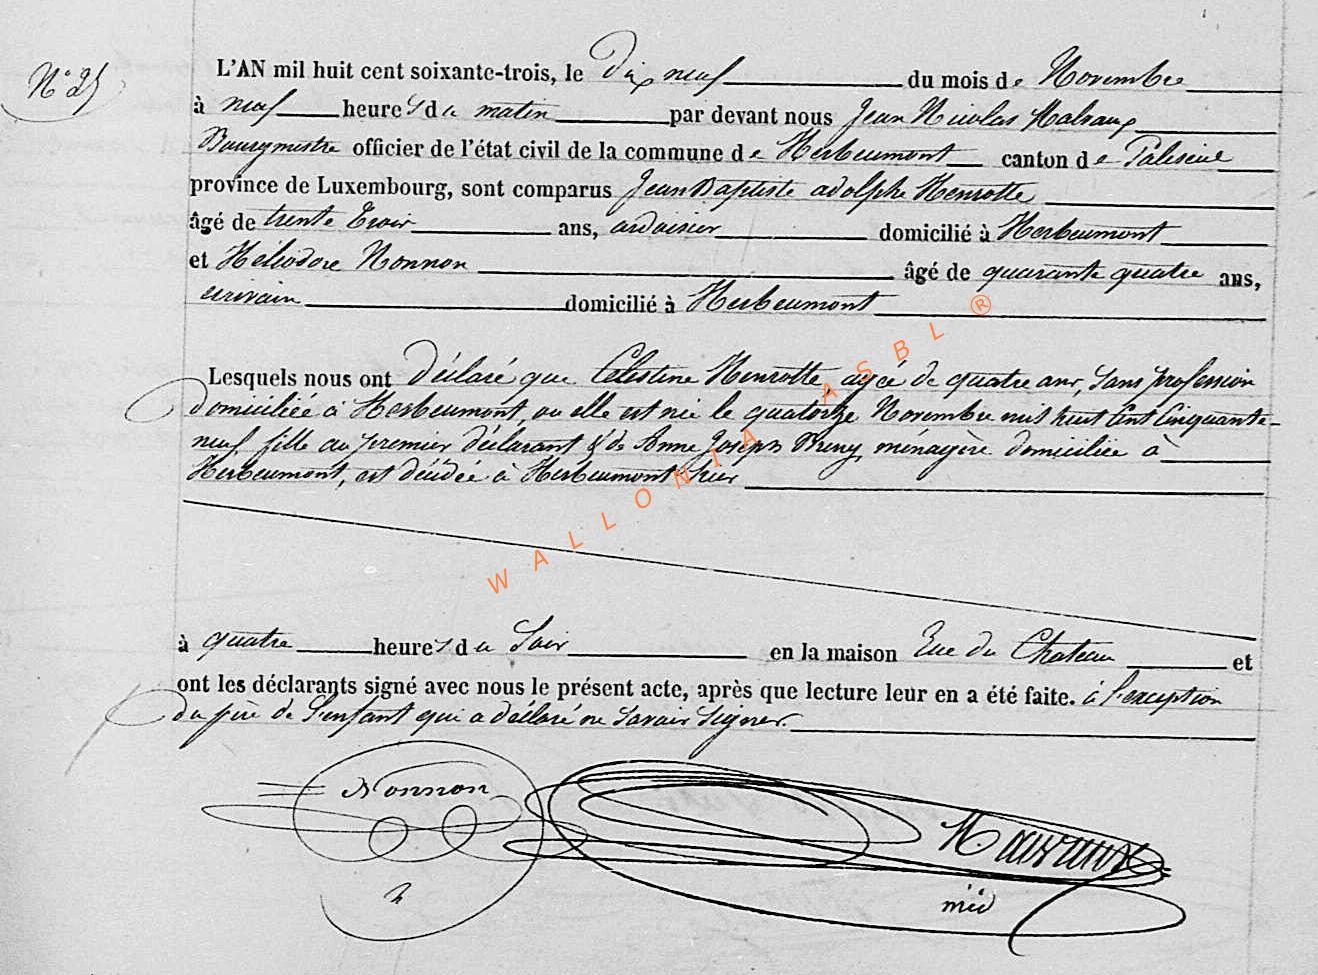 N° 25
L'AN mil huit cent soixante-trois, le dix neuf du mois de Novembre
à neuf heures du matin par devant nous Jean Nicolas Malvaux
Bourgmestre officier de l'état civil de la commune de Herbeumont canton de Paliseul
province de Luxembourg, sont comparus Jean Baptiste adolphe Henrotte
âgé de trente trois ans, ardoisier domicilié à Herbeumont
et Héliodore Nonnon âgé de quarante quatre ans,
écrivain domicilié à Herbeumont
Lesquels nous ont déclaré que Célestine Henrotte, agée de quatre ans, sans profession
domiciliée à Herbeumont, ou elle est née le quatorze Novembre mil huit cent cinquante-
neuf fille au premier déclarant & de Anne Joseph ménagère domiciliée à
Herbeumont, est décédée à Herbeumont hier
à quatre heures du soir en la maison Rue du Chateau et
ont les déclarants signé avec nous le présent acte, après que lecture leur en a été faite. à l'exception
du père de l'enfant qui a déclaré ne savoir signer.
Nonnon
WALLONIA ASBL ®